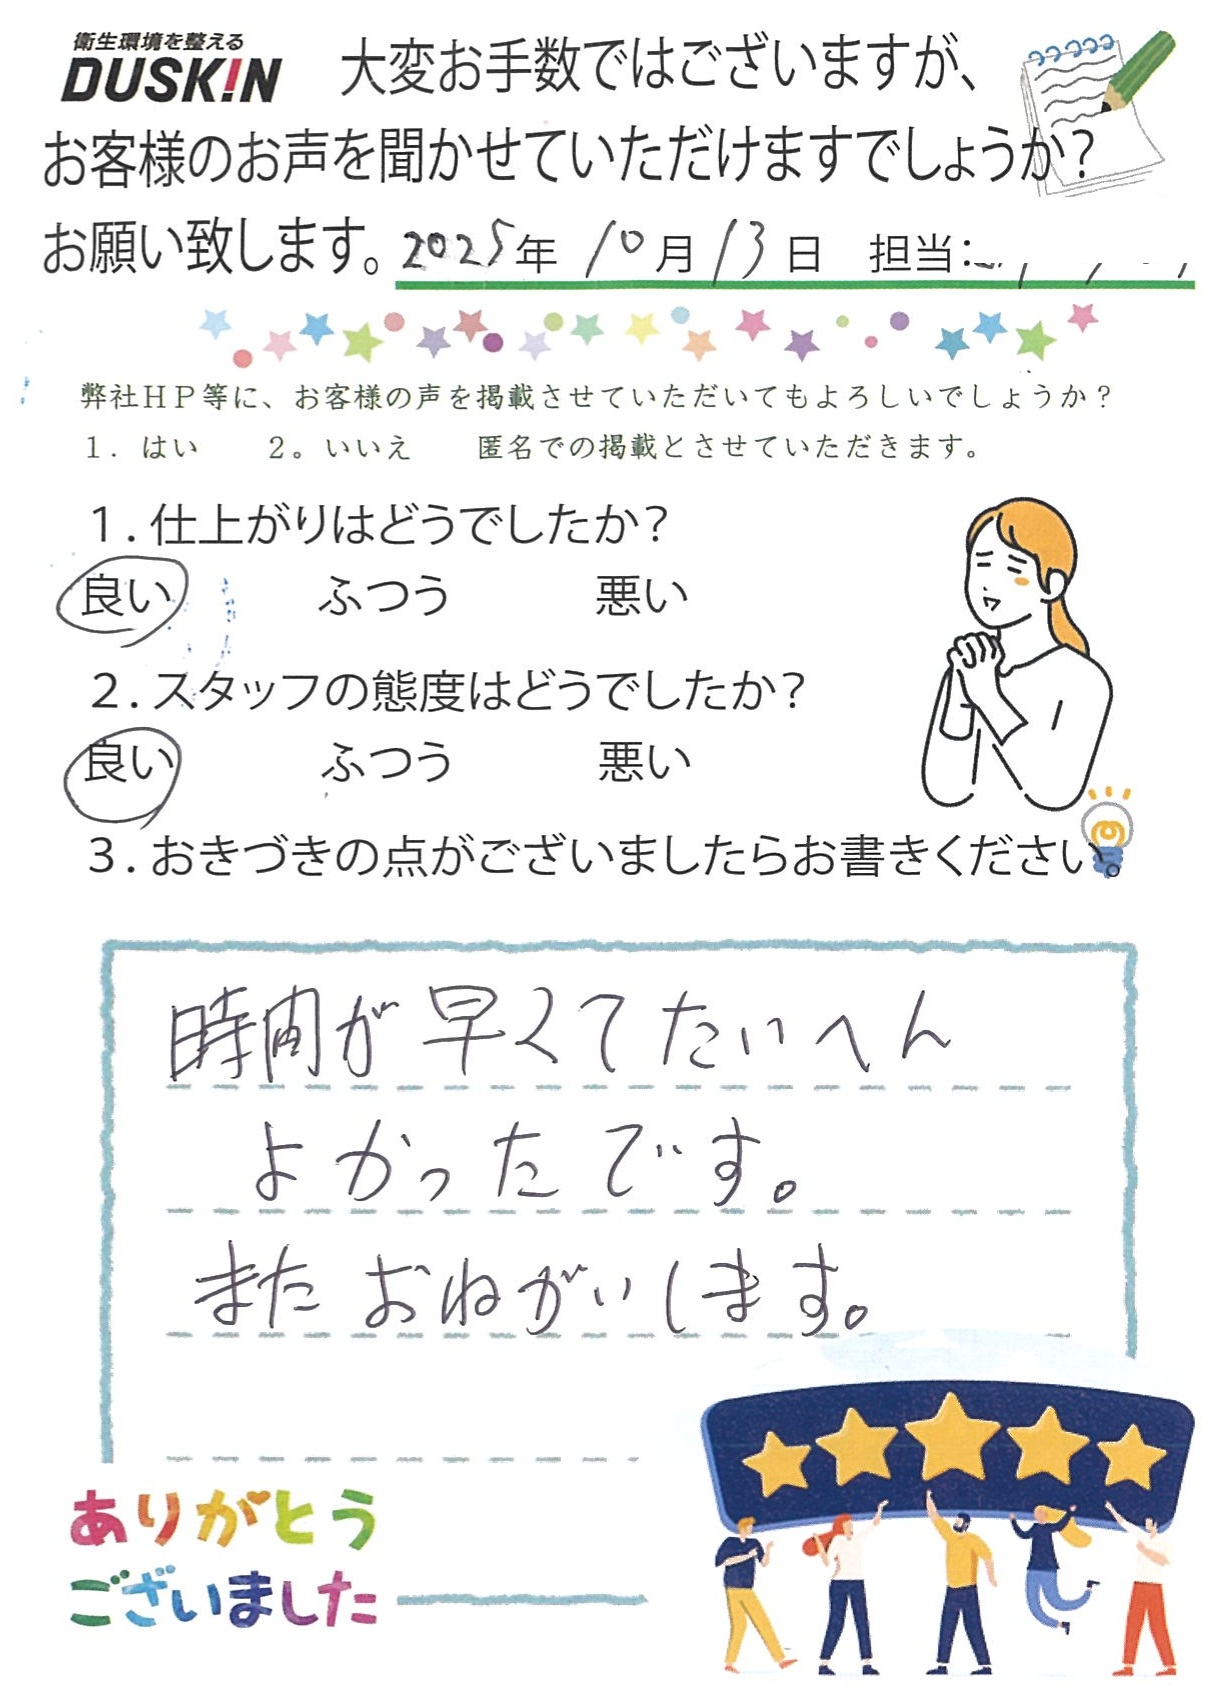 衛生環境を整える
DUSKIN 大変お手数ではございますが、
お客様のお声を聞かせていただけますでしょうか?
お願い致します。2025年 10月13日 担当:
弊社HP等に、お客様の声を掲載させていただいてもよろしいでしょうか?
1. はい 2。いいえ 匿名での掲載とさせていただきます。
1.仕上がりはどうでしたか?
良い ふつう 悪い
2.スタッフの態度はどうでしたか?
良い ふつう 悪い
3.おきづきの点がございましたらお書きください。
時間が早くてたいへん
よかったです。
またおねがいします。
ありがとう
ございました